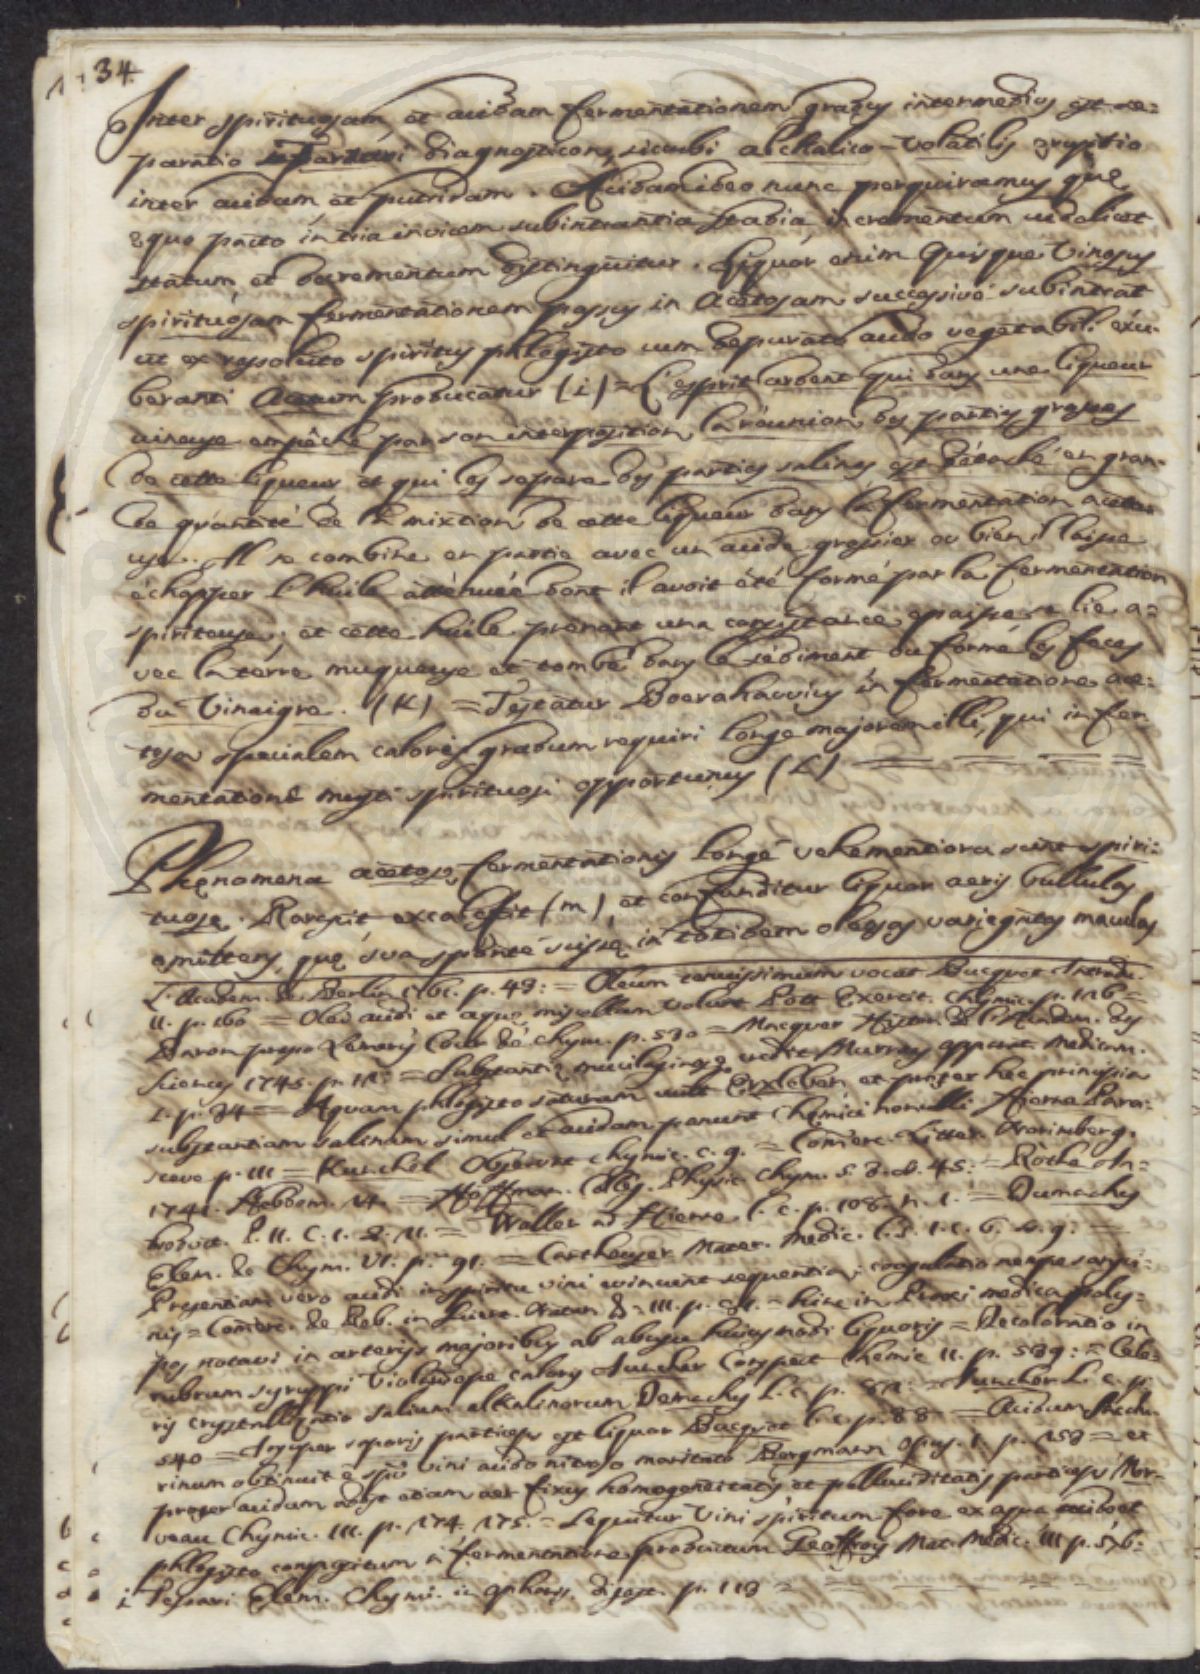 34.
Inter spirituosam, et acidam fermentationem gradus intermedius est se-
paratio Tartari diagnosticon, sicubi alckalico-volatilis eruptio
inter acidam et putridam. Acidam ideo nunc perquiramus quę
quo pacto in tria invicem subintrantia stadia, incrementum videlicet
statum, et decrementum distinguitur. Liquor enim quisque Vinosus
spirituosam fermentationem passus in Acetosam successive subintrat
ut ex resoluto spiritus phlogisto cum depurato acido vegetabili exu-
beranti Acetum producatur (i) = L'esprit ardent qui dans une liqueur
vineuse empêche par son interposition la réunion des parties grasses
de cette liqueur et qui les separe des parties salines est détaché en gran-
de quantité de la mixtion de cette liqueur dans la fermentation aceteu
use. Il se combine en partie avec un acide grossier ou bien il laisse
échapper l'huile atténuée dont il avoit été formé par la fermentation
spiriteuse; et cette huile prenant une consistance epaisse se lie a-
vec la terre muqueuse et tombe dans le sédiment ou forme les feces
du Vinaigre. (K) = Testatur Boerahavius in fermentatione ace-
tosa specialem caloris gradum requiri longe majorem illi, qui in fer
mentatione musti spirituosi opportunus (L)
Phęnomena acetosę fermentationis longe vehementiora sunt spiri-
tuosę. Rarescit, excalescit (m), et confunditur liquor aeris bullulas
emittens, quę sua sponte suisę in totidem oleosas variegatas maculas
L'Academ. de Berlin p. 49: = Oleum tenuissimum vocat Bucquet Introdu.
II. p. 160 = Oleo acidi et aquę miscellam volunt Pott Exercit. Chymic. p. 126 =
Baron propo Lemery Cour de chym. p. 530 = Macquer Histor. de l'Academ. des
Sciences 1745. p. 12: = Substantię mucilaginosę vedit Murray apparat. medicam.
I. p. 34 = Aquam phlogisto saturam vult Erxleben et pręter hęc principia
substantiam salinam simul et acidam ponunt Chemici nonnulli
p. III = Kunckel Observat. chymic. c. 9. = Comerc. Litter. Norimberg.
1741. Hebdom. 14. = Hoffman. Obs. Physic. Chym. L. 3. ob. 45: = Rothe In-
troduct. P. II. C. 1. S. 11. = Waller ad Hierne l. c. p. 108. n. 1. = Demachy
Elem. de Chym. VI. p. 91. = Cartheuser Mater. Medic. l. 1. c. 6. =
Pręsentiam vero acidi in spiritu vini evincunt sequentia; coagulatio nempe sangui-
nis = Comerc. de Reb. in Scien. Natur. & III. p. = hinc in Praxi medica poly-
pos notavi in arteriis majoribus ab abusu huiusmodi liquoris = Decoloratio in
rubrum syruppi Violar Juncker Conspect. Chemic II. p. 539: = Cele-
ris crystallizatio salium alkalinorum Demachy l. c. p. = Juncker l. c. p.
540 = saporis particeps est liquor Bucquet l. c. p. 88 = Acidum Saccha-
rinum obtinuit è spir vini acido nitroso maritato Bergmann Opus. I. p. 253 = et
pręter acidum adest etiam aer fixus homogeneitatis et pelluciditatis particeps Mor-
veau Chymic. III. p. 174. 175. = Sequitur Vini spiritum fore ex aqua acido et
phlogisto compositum à fermentatione productum Geoffroy Mat. Medic. III p. 576:
i Elem. Chymi. p. 113 =